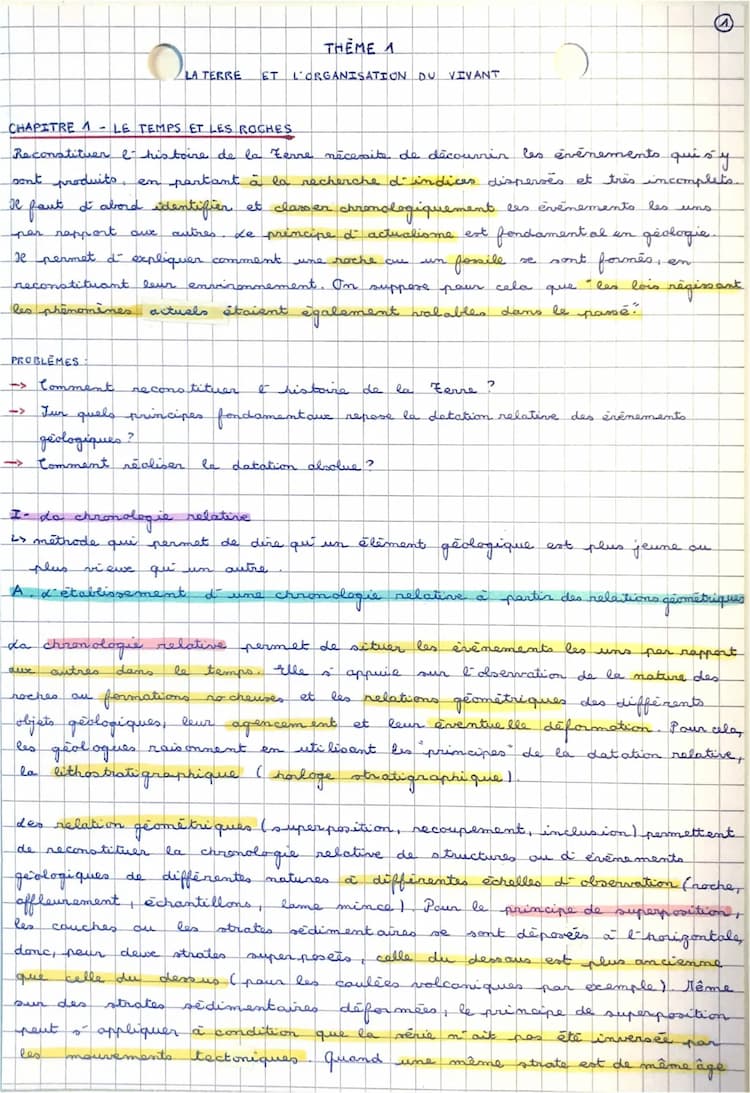 1
THÈME 1
LA TERRE ET L'ORGANISATION DU VIVANT
CHAPITRE 1 - LE TEMPS ET LES ROCHES
Reconstituer l'histoire de la Terre nécessite de découvrir les événements qui s'y
sont produits, en partant à la recherche d'indices dispersés et très incomplets.
Il faut d'abord identifier et classer chronologiquement les événements les uns
par rapport aux autres. Le principe d'actualisme est fondamental en géologie.
Il permet d'expliquer comment une roche ou un fossile se sont formés, en
reconstituant leur environnement. On suppose pour cela que "les lois régissant
les phénomènes actuels étaient également valables dans le passé".
PROBLÈMES :
-> Comment reconstituer l'histoire de la Terre ?
-> Sur quels principes fondamentaux repose la datation relative des événements
géologiques ?
-> Comment réaliser la datation absolue ?
I- La chronologie relative
↳ méthode qui permet de dire qu'un élément géologique est plus jeune ou
plus vieux qu'un autre.
A. L'établissement d'une chronologie relative à partir des relations géométriques
La chronologie relative permet de situer les événements les uns par rapport
aux autres dans le temps. Elle s'appuie sur l'observation de la nature des
roches ou formations rocheuses et les relations géométriques des différents
objets géologiques, leur agencement et leur éventuelle déformation. Pour cela,
les géologues raisonnent en utilisant les "principes" de la datation relative,
la lithostratigraphique (horloge stratigraphique).
Les relation géométriques (superposition, recoupement, inclusion) permettent
de reconstituer la chronologie relative de structures ou d'événements
géologiques de différentes natures à différentes échelles d'observation (roche,
affleurement, échantillons, lame mince). Pour le principe de superposition,
les couches ou les strates sédimentaires se sont déposées à l'horizontale,
donc, pour deux strates superposées, celle du dessous est plus ancienne
que celle du dessus (pour les coulées volcaniques par exemple). Même
sur des strates sédimentaires déformées, le principe de superposition
peut s'appliquer à condition que la série n'ait pas été inversée par
les mouvements tectoniques. Quand une même strate est de même âge